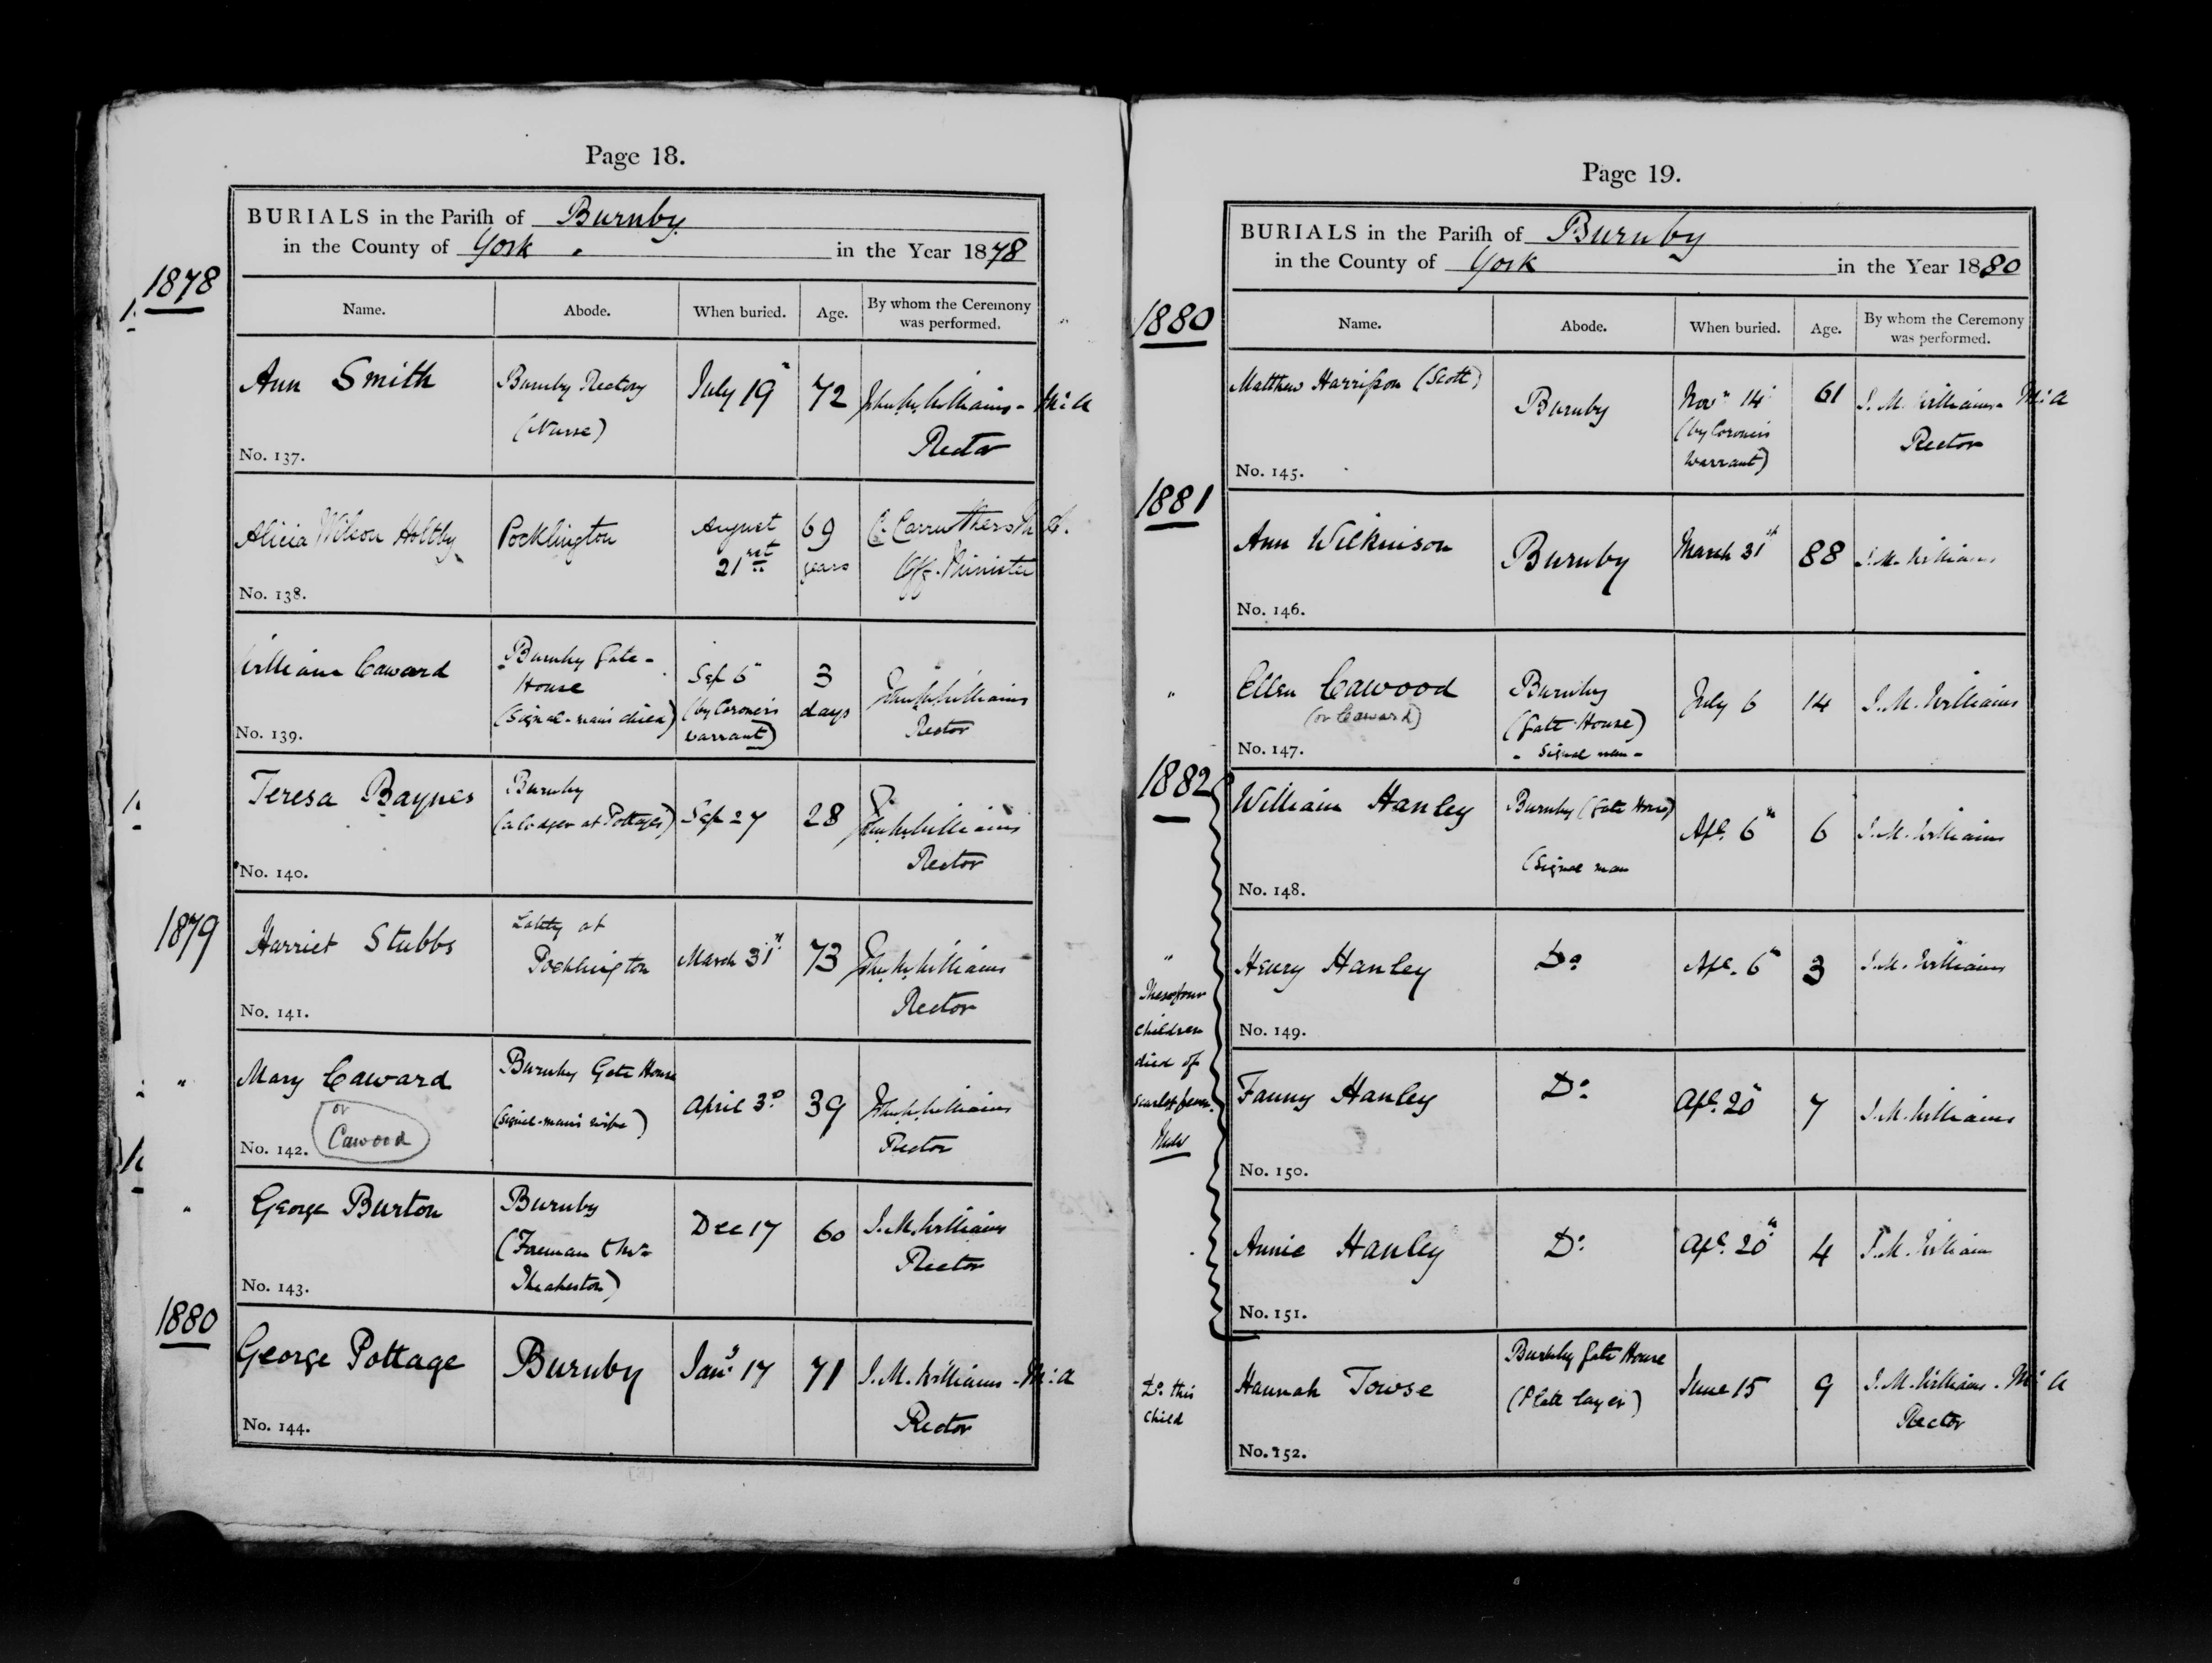 Page 18.
BURIALS in the Parish of Burnby
in the County of York in the Year 1878
1878
Name. Abode. When buried. Age. By whom the Ceremony was performed.
Ann Smith
Burnby Rectory
(Nurse)
July 19
72
John M. Williams - M:A
Rector
No. 137.
Alicia Wilson Holtby
Pocklington
August
21st
69
years
C. Carruthers M.A.
Off. Minister
No. 138.
William Caward
Burnby Gate-
House
(Signal-man's child)
Sep 6
(by Coroner's
warrant)
3
days
John M. Williams
Rector
No. 139.
Teresa Baynes
Burnby
(a lodger at Pottages)
Sep 27
28
John M. Williams
Rector
No. 140.
1879
Harriet Stubbs
Lately at
Pocklington
March 31st
73
John M. Williams
Rector
No. 141.
"
Mary Caward
or
Cawood
Burnby Gate House
(signal-man's wife)
April 3d
39
John M. Williams
Rector
No. 142.
"
George Burton
Burnby
(Foreman
Dec 17
60
J. M. Williams
Rector
No. 143.
1880
George Pottage
Burnby
Jany 17
71
J. M. Williams - M:A
Rector
No. 144.
Page 19.
BURIALS in the Parish of Burnby
in the County of York in the Year 1880
1880
Name. Abode. When buried. Age. By whom the Ceremony was performed.
Matthew Harrisson (Scott)
Burnby
Novr 14
(by Coroner's
Warrant)
61
J. M. Williams - M:A
Rector
No. 145.
1881
Ann Wilkinson
Burnby
March 31st
88
J. M. Williams
No. 146.
"
Ellen Cawood
(or Caward)
Burnby
(Gate House)
- Signal man -
July 6
14
J. M. Williams
No. 147.
1882
William Hanley
Burnby (Gate House)
(Signal man
Apl. 6th
6
J. M. Williams
No. 148.
"
These four
children
died of
scarlet fever.
Henry Hanley
Do
Apl. 6th
3
J. M. Williams
No. 149.
Fanny Hanley
Do
Apl. 20
7
J. M. Williams
No. 150.
Annie Hanley
Do
Apl. 20th
4
J. M. Williams
No. 151.
Do this
child
Hannah Towse
Burnby Gate House
(Plate layer)
June 15
9
J. M. Williams - M:A
Rector
No. 152.